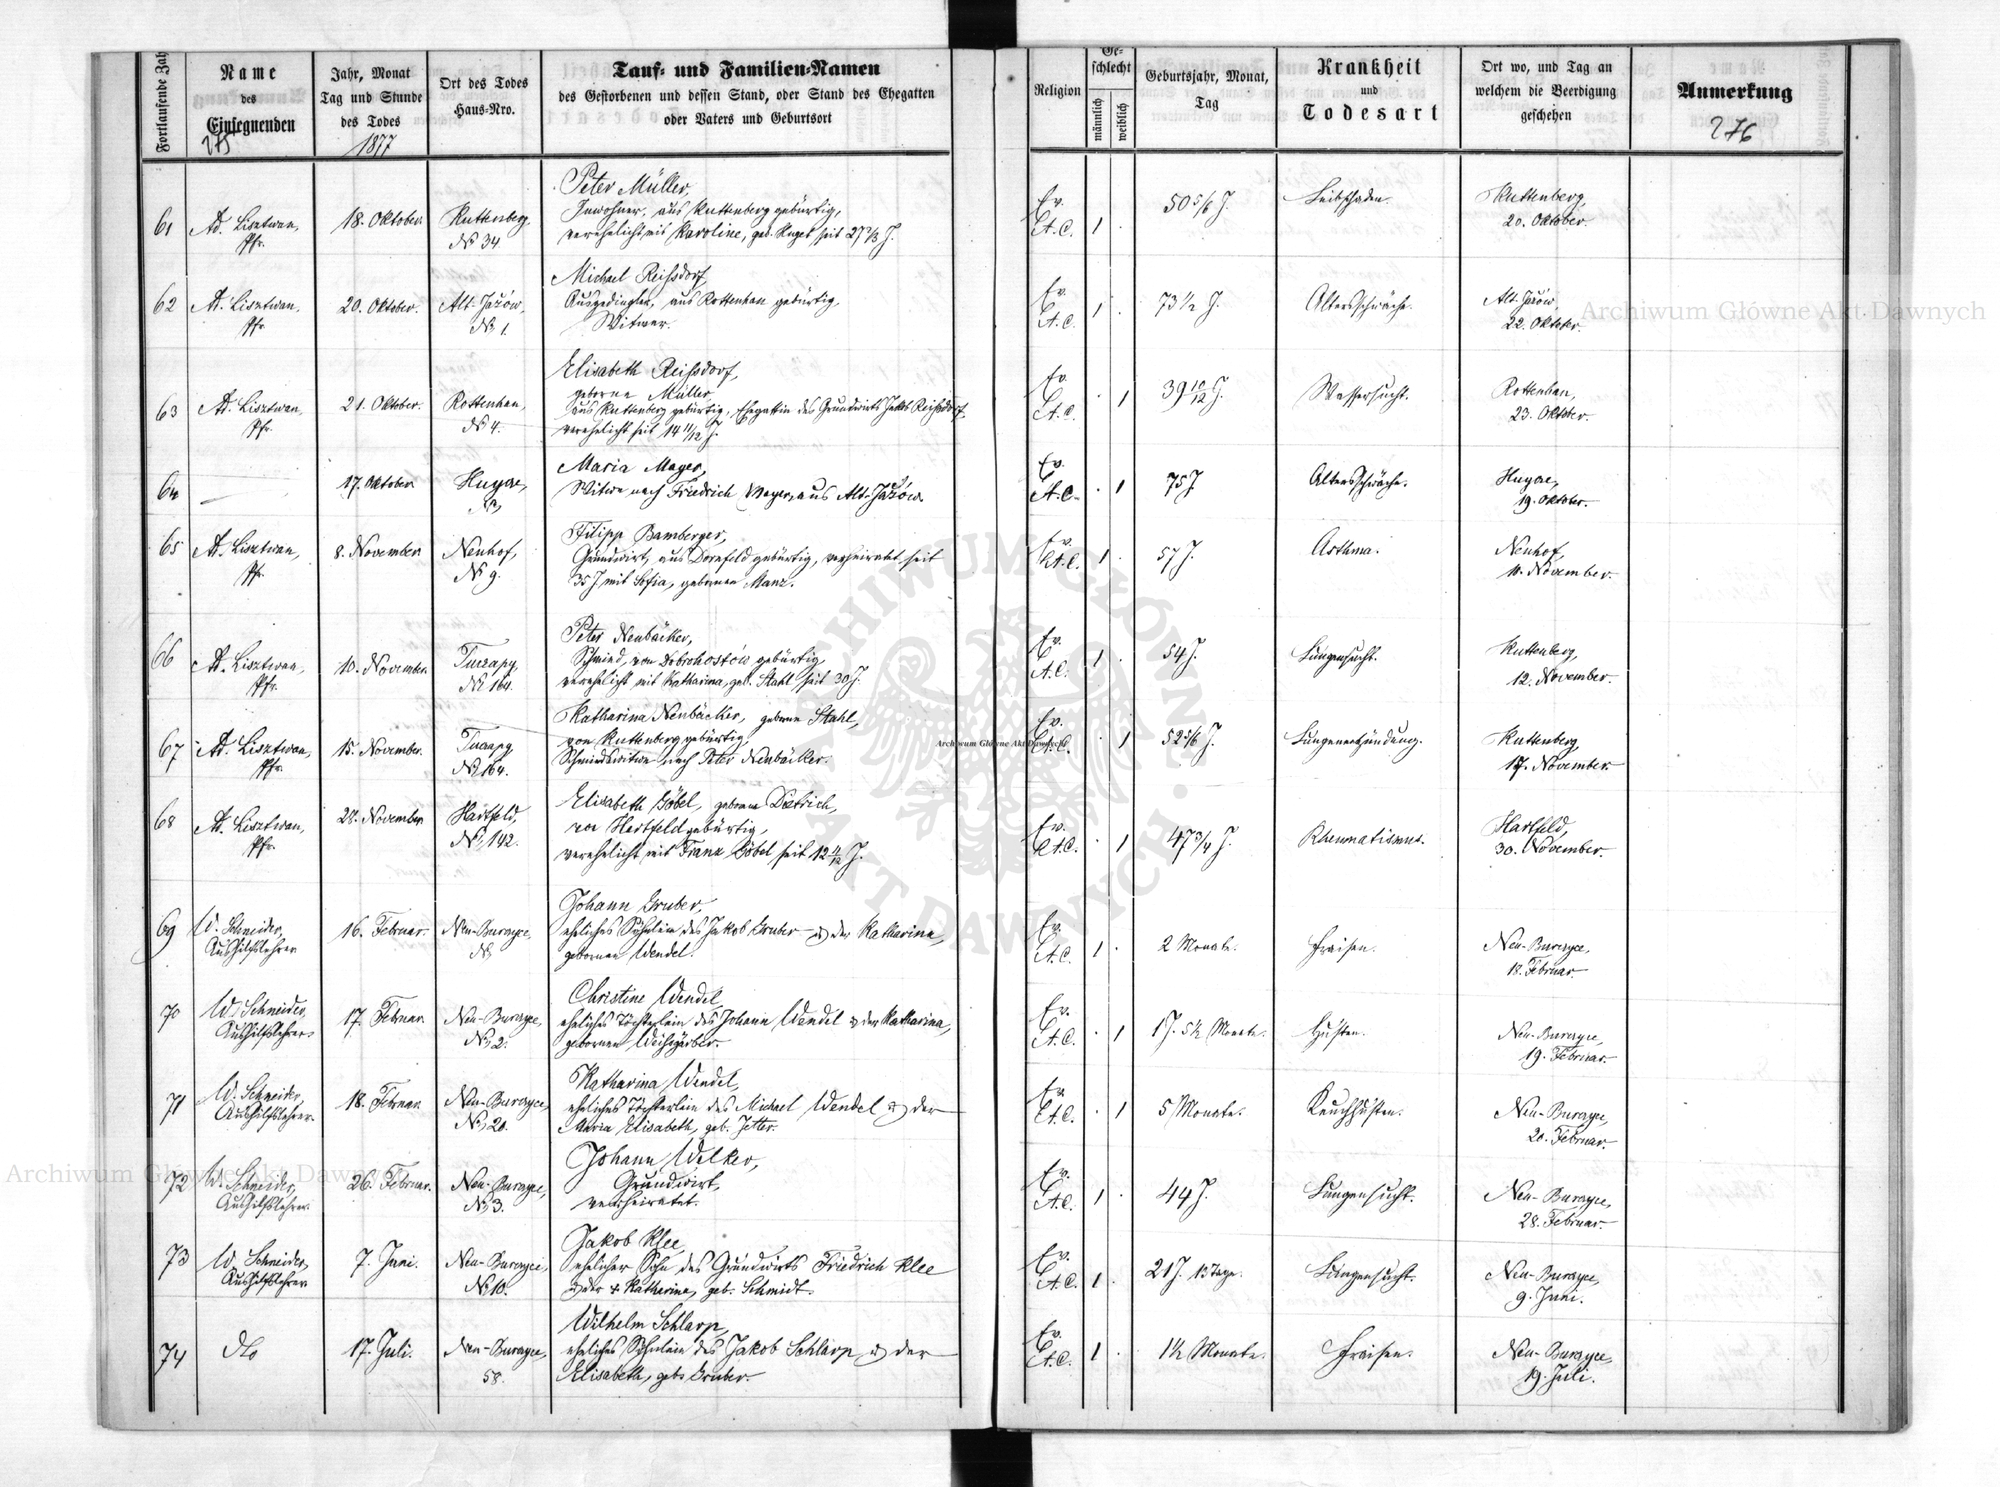 Fortlaufende Zahl
Name
des
Einsegnenden
275
Jahr, Monat
Tag und Stunde
des Todes
1877
Ort des Todes
Haus-Nro.
Tauf- und Familien-Namen
des Gestorbenen und dessen Stand, oder Stand des Ehegatten
oder Vaters und Geburtsort
Religion
Ge-
schlecht
männlich
weiblich
Geburtsjahr, Monat,
Tag
Krankheit
und
Todesart
Ort wo, und Tag an
welchem die Beerdigung
geschehen
Anmerkung
276
61
Ad. Lisztwan,
Pfr.
18. Oktober.
Kuttenberg.
No 34.
Peter Müller,
Inwohner, aus Kuttenberg gebürtig,
verehelicht mit Karoline, geb. seit 27 1/3 J.
Ev.
A.C.
1
50 5/6 J.
Leibschaden.
Kuttenberg,
20. Oktober.
62
Ad. Lisztwan,
Pfr.
20. Oktober.
Alt-Jażów,
No 1.
Michael Reißdorf,
Ausgedingler, aus Rottenhan gebürtig,
Witwer.
Ev.
A.C.
1
73 1/2 J.
Altersschwäche.
Alt-Jażów,
22. Oktober.
63
Ad. Lisztwan,
Pfr.
21. Oktober.
Rottenhan,
No 4.
Elisabeth Reißdorf,
geborne Müller,
aus Kuttenberg gebürtig, Ehegattin des Grundwirts Jakob Reißdorf,
verehelicht seit 14 11/12 J.
Ev.
A.C.
1
39 10/12 J.
Wassersucht.
Rottenhan,
23. Oktober.
64
17. Oktober
Huycze,
No
Maria Mayer,
Witwe nach Friedrich Mayer, aus Alt-Jażów.
Ev.
A.C.
1
75 J.
Altersschwäche.
Huycze,
19. Oktober.
65
Ad. Lisztwan,
Pfr.
8. November
Neuhof,
No 9.
Filipp Bamberger,
Grundwirt, aus Dornfeld gebürtig, verheiratet seit
35 J. mit Sofia, gebornen Manz.
Ev.
A.C.
1
57 J.
Asthma.
Neuhof,
10. November.
66
Ad. Lisztwan,
Pfr.
10. November.
No 164.
Peter Neubäcker,
Schmied, von Dobrohostów gebürtig,
verehelicht mit Katharina, geb. Stahl, seit 30 J.
Ev.
A.C.
1
54 J.
Lungensucht.
Kuttenberg,
12. November.
67
Ad. Lisztwan,
Pfr.
15. November.
No 164.
Katharina Neubäcker, geborne Stahl,
von Kuttenberg gebürtig,
Schmiedswitwe nach Peter Neubäcker.
Ev.
A.C.
1
52 5/6 J.
Lungenentzündung.
Kuttenberg,
17. November.
68
Ad. Lisztwan,
Pfr.
28. November
Hartfeld,
No 142.
Elisabeth Göbel, geborne Dietrich,
von Hartfeld gebürtig,
verehelicht mit Franz Göbel seit 12 11/12 J.
Ev.
A.C.
1
47 3/4 J.
Rheumatismus.
Hartfeld,
30. November.
69
W. Schneider,
Aushilfslehrer
16. Februar.
Neu-Burczyce,
No
Johann Gruber,
eheliches Söhnlein des Jakob Gruber & der Katharina,
gebornen Wendel.
Ev.
A.C.
1
2 Monate.
Fraisen.
Neu-Burczyce,
18. Februar.
70
W. Schneider,
Aushilfslehrer.
17. Februar.
Neu-Burczyce,
No 2.
Christine Wendel,
eheliches Töchterlein des Johann Wendel & der Katharina,
gebornen Weißgärber.
Ev.
A.C.
1
1 J. 5 1/2 Monate.
Husten.
Neu-Burczyce,
19. Februar.
71
W. Schneider,
Aushilfslehrer.
18. Februar.
Neu-Burczyce,
No 20.
Katharina Wendel,
eheliches Töchterlein des Michael Wendel & der
Maria Elisabeth, geb. Jetter.
Ev.
A.C.
1
5 Monate.
Keuchhusten.
Neu-Burczyce,
20. Februar.
72
W. Schneider,
Aushilfslehrer.
26. Februar.
Neu-Burczyce,
No 3.
Johann Welker,
Grundwirt,
verheiratet.
Ev.
A.C.
1
44 J.
Lungensucht.
Neu-Burczyce,
28. Februar.
73
W. Schneider,
Aushilfslehrer
7. Juni.
Neu-Burczyce,
No 10.
Jakob Klee,
ehelicher Sohn des Grundwirts Friedrich Klee
& der + Katharina, geb. Schmidt.
Ev.
A.C.
1
21 J. 13 Tage.
Lungensucht.
Neu-Burczyce,
9. Juni.
74
dto
17. Juli.
Neu-Burczyce,
58.
Wilhelm Schlarp,
eheliches Söhnlein des Jakob Schlarp & der
Elisabeth, geb. Gruber.
Ev.
A.C.
1
1 1/2 Monate.
Fraisen.
Neu-Burczyce,
19. Juli.
Archiwum Główne Akt Dawnych
Archiwum Główne Akt Dawnych
Archiwum Główne Akt Dawnych
ARCHIWUM GŁÓWNE AKT DAWNYCH